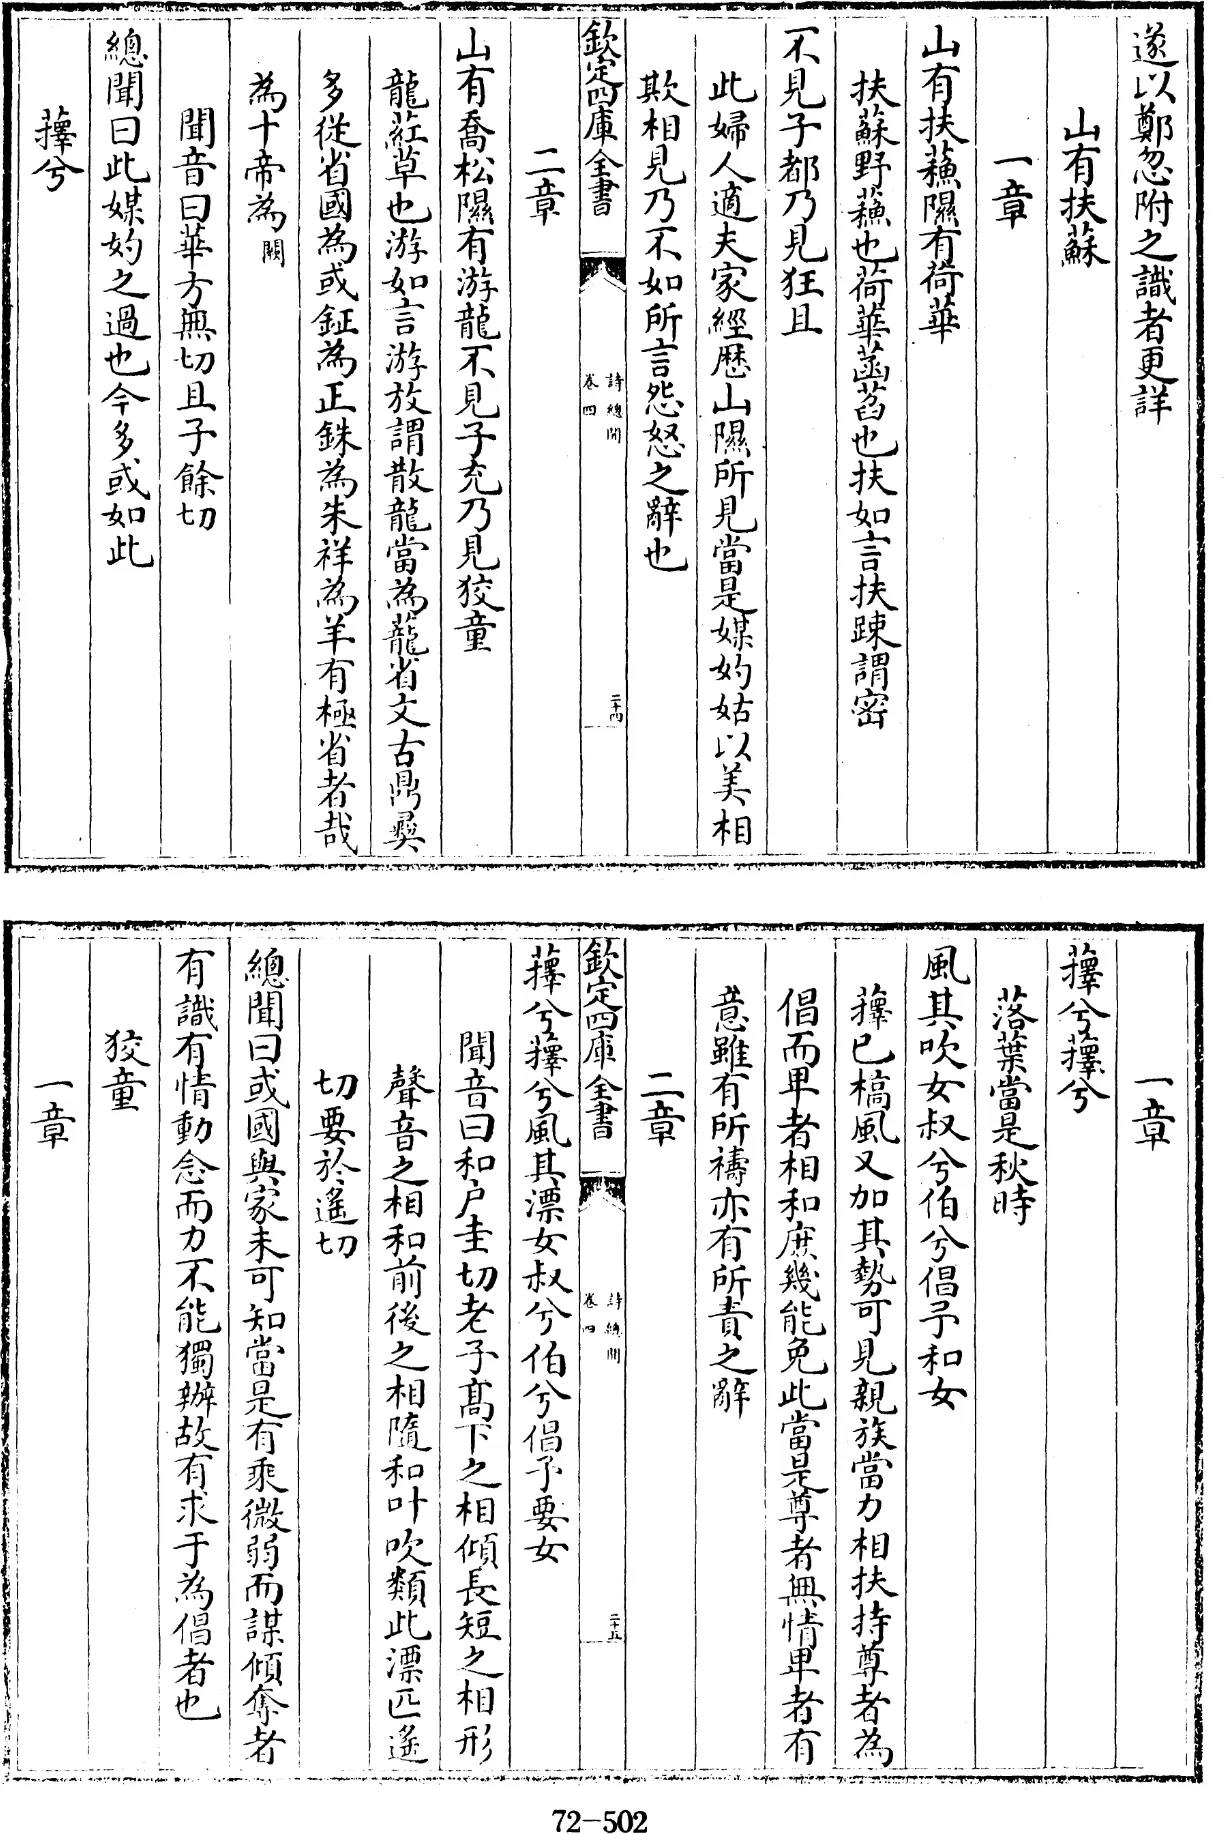 遂以鄭忽附之識者更詳
山有扶蘇
一章
山有扶蘓隰有荷華
扶蘇野蘓也荷華菡萏也扶如言扶踈謂密
不見子都乃見狂且
此婦人適夫家經歴山隰所見當是媒妁姑以美相
欺相見乃不如所言怨怒之辭也
欽定四庫全書
詩總聞
卷四
二十四
二章
山有喬松隰有游龍不見子充乃見狡童
龍葒草也游如言游放謂散龍當為蘢省文古鼎彛
多從省國為或鉦為正銖為朱祥為羊有極省者哉
為十帝為闕
聞音曰華方無切且子餘切
總聞曰此媒妁之過也今多或如此
蘀兮
一章
蘀兮蘀兮
落葉當是秋時
風其吹女叔兮伯兮倡予和女
蘀已槁風又加其勢可見親族當力相扶持尊者為
倡而卑者相和庶幾能免此當是尊者無情卑者有
意雖有所禱亦有所責之辭
二章
欽定四庫全書
詩總聞
卷四
二十五
蘀兮蘀兮風其漂女叔兮伯兮倡予要女
聞音曰和户圭切老子髙下之相傾長短之相形
聲音之相和前後之相隨和叶吹類此漂匹遙
切要於遙切
總聞曰或國與家未可知當是有乘微弱而謀傾奪者
有識有情動念而力不能獨辦故有求于為倡者也
狡童
一章
72-502